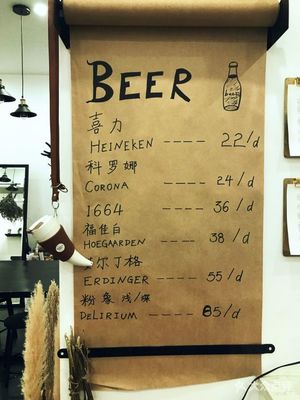 BEER
beer
喜力
HEINEKEN ---- 22/d
科罗娜
CORONA ---- 24/d
1664 ---- 36/d
福佳白
HOEGAARDEN ---- 38/d
尔丁格
ERDINGER ---- 55/d
粉象 浅/深
DELIRIUM ---- 85/d